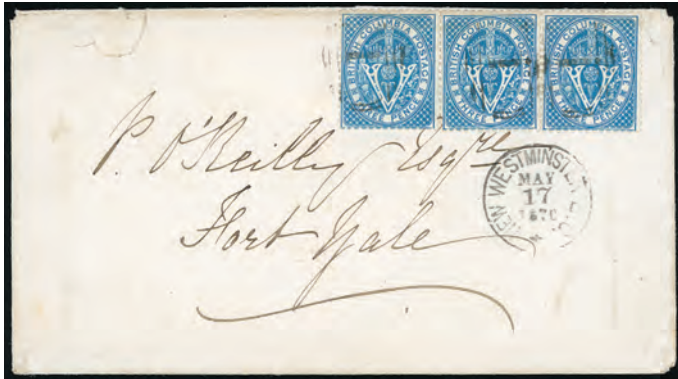 BRITISH COLUMBIA POSTAGE THREE PENCE V
BRITISH COLUMBIA POSTAGE THREE PENCE V
BRITISH COLUMBIA POSTAGE THREE PENCE V
P. O'Reilly Esqre
Fort Yale
NEW WESTMINSTER B.C.
MAY
17
1870